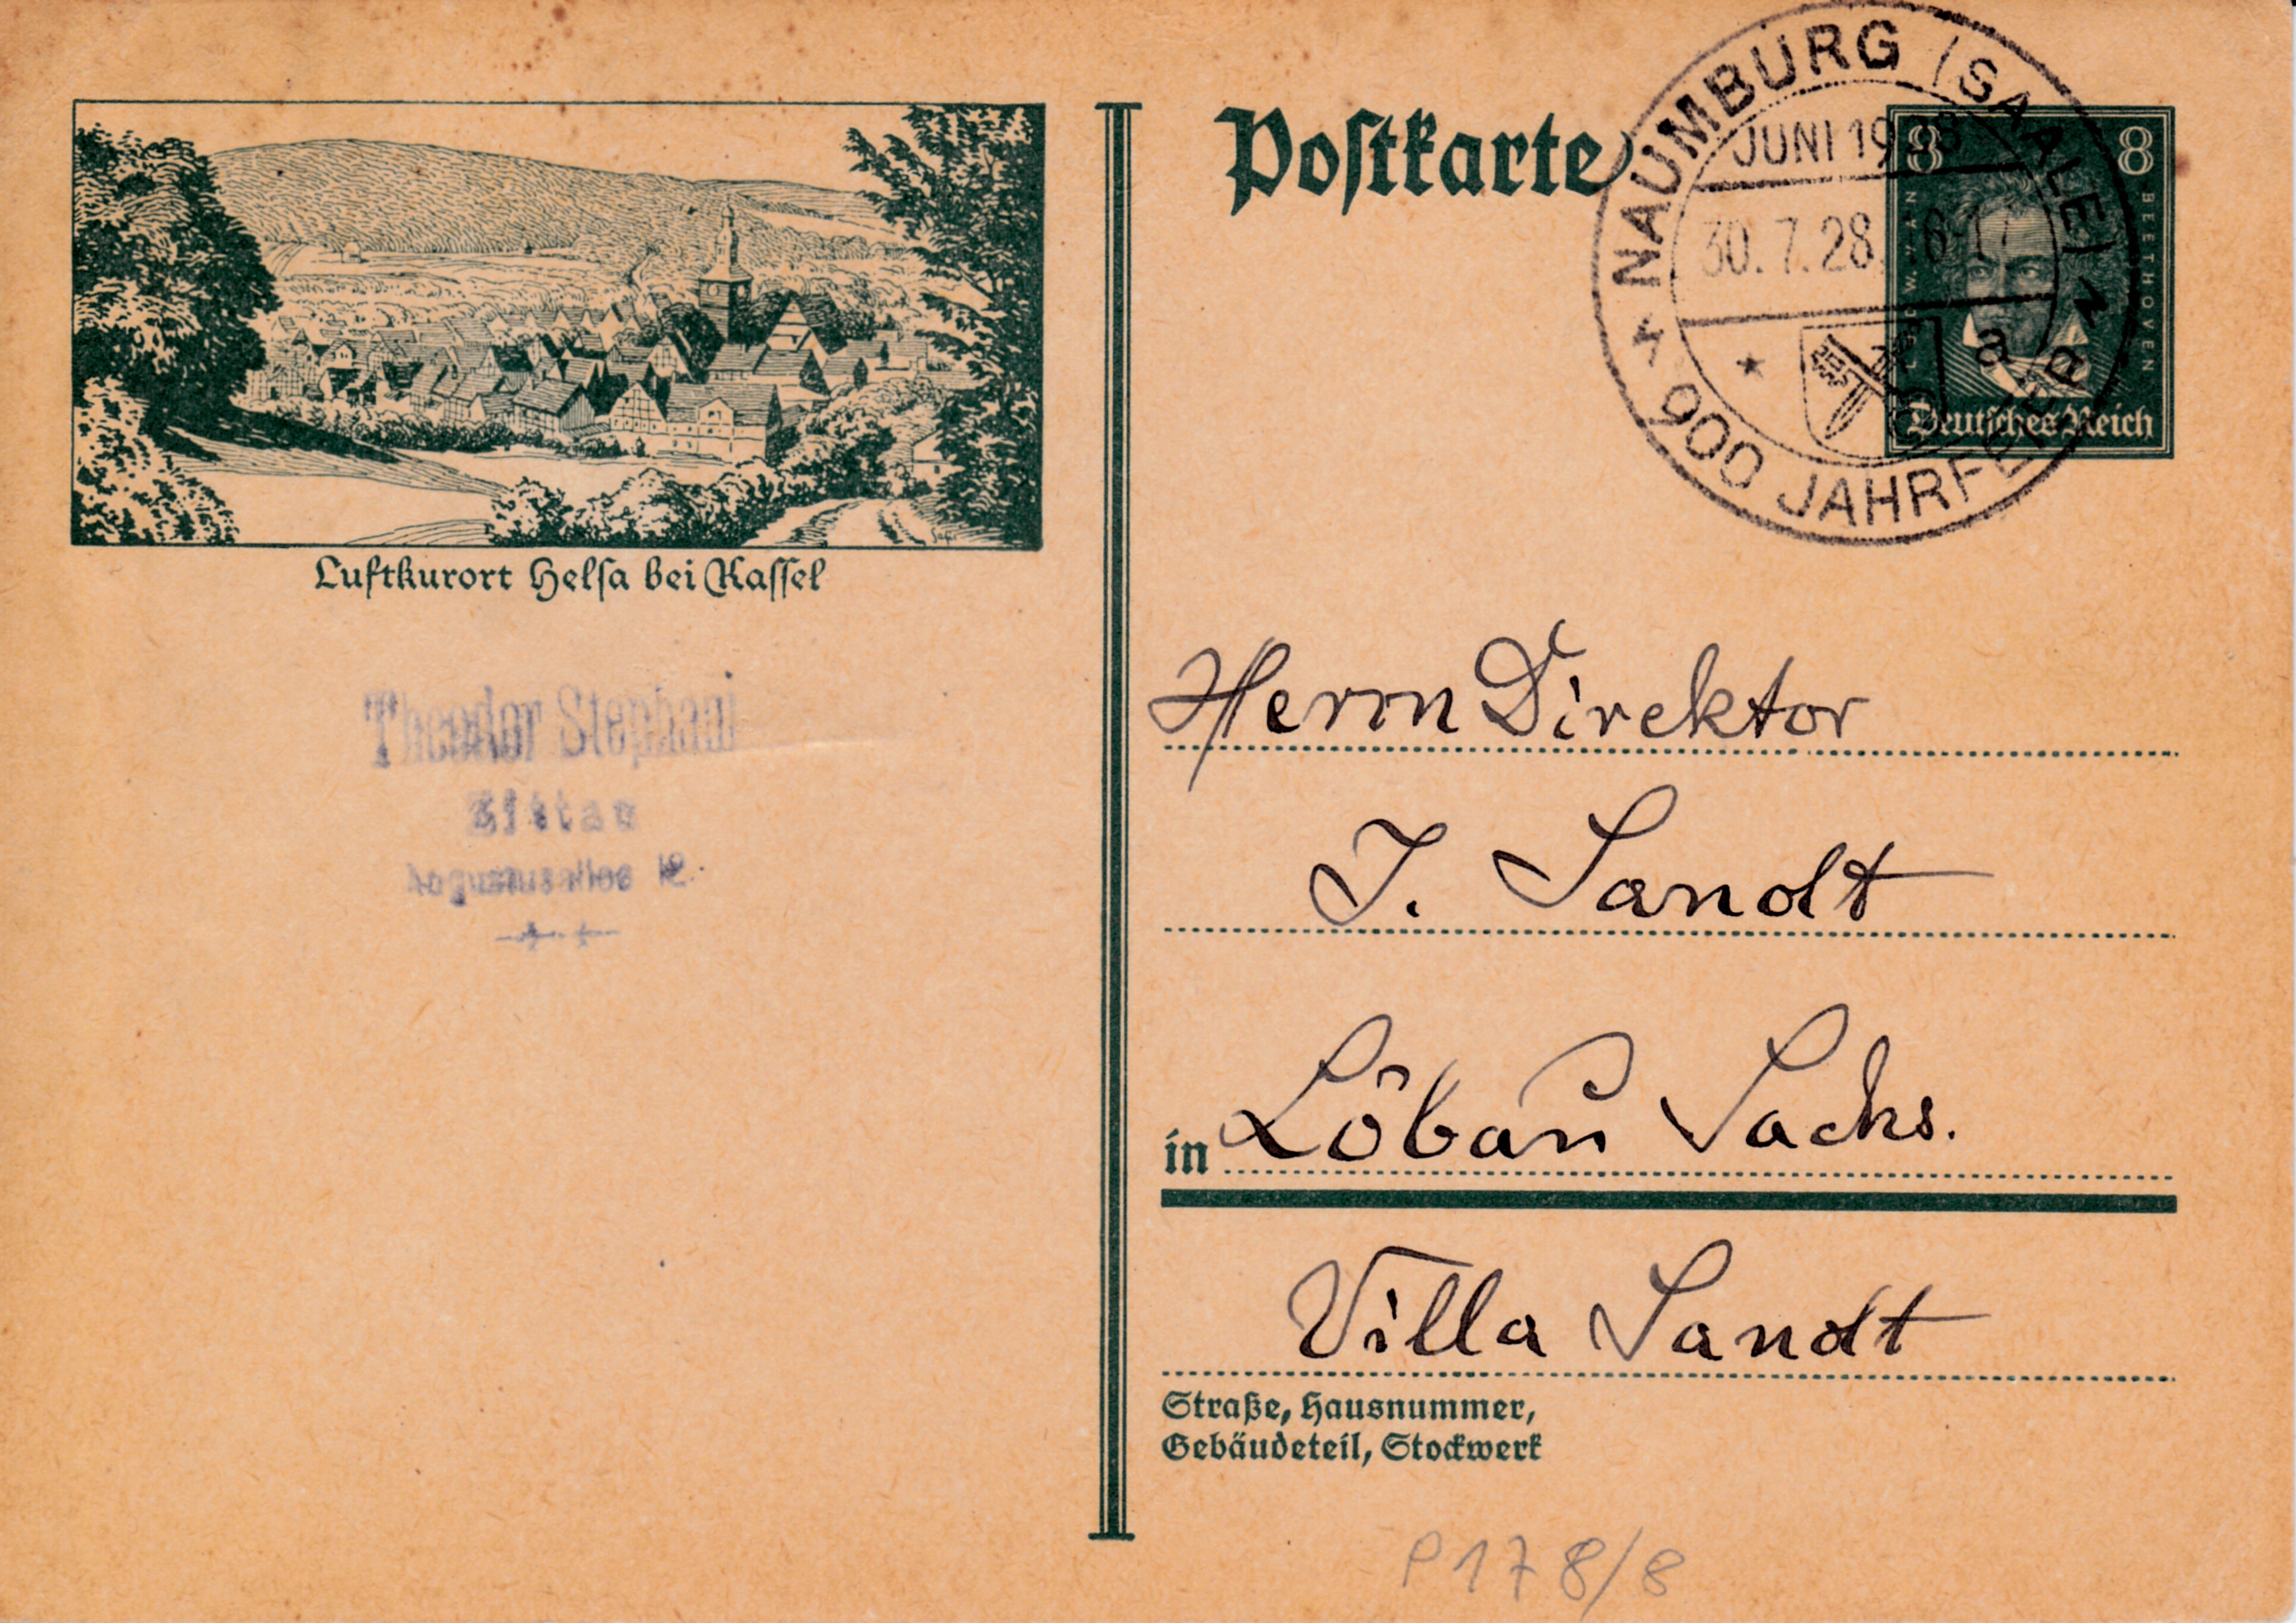 Postkarte
NAUMBURG (SAALE)
JUNI 1928
30.7.28. 16-17
a
900 JAHRFEIER
8 8
BEETHOVEN
Deutsches Reich
Luftkurort Helsa bei Kassel
Theodor Stephani
Zittau
Augustusallee 12.
Herrn Direktor
J. Sandt
in Löbau Sachs.
Villa Sandt
Straße, Hausnummer,
Gebäudeteil, Stockwerk
P178/8